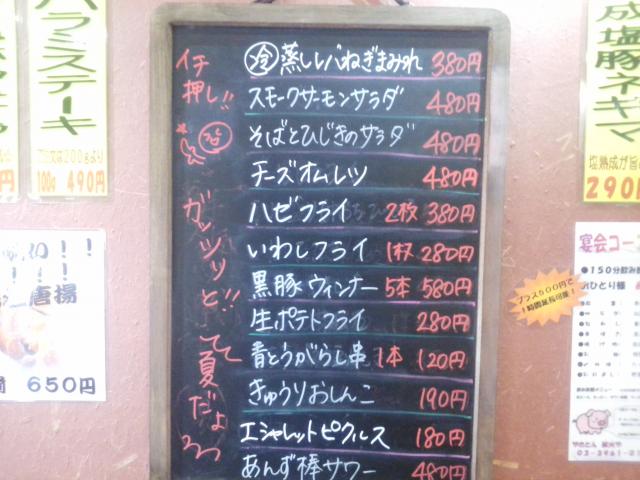 ハラミステーキ
100g 490円
650円
唐揚
イチ
押し!!
ガッツリと!!
夏だよ
㋹蒸しレバねぎまみれ 380円
スモークサーモンサラダ 480円
そばとひじきのサラダ 480円
チーズオムレツ 480円
ハゼフライ 2枚 380円
いわしフライ 1枚 280円
黒豚ウィンナー 5本 580円
生ポテトフライ 280円
青とうがらし串 1本 120円
きゅうりおしんこ 190円
エシャレットピクルス 180円
あんず棒サワー 480円
成塩豚ネギマ
塩熟成が旨
290
宴会コー
●150分飲み
プラス500円で
1時間延長可能!